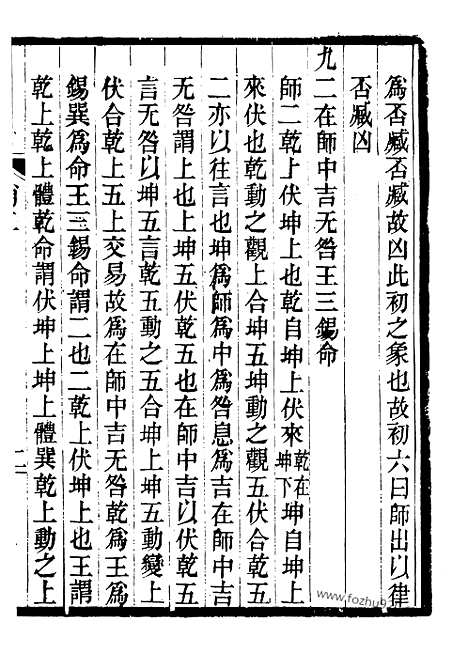 爲否臧否臧故凶此初之象也故初六曰師出以律
否臧凶
九二在師中吉无咎王三錫命
師二乾上伏坤上也乾自坤上伏來乾在坤下坤自坤上
來伏也乾動之觀上合坤五坤動之觀五伏合乾五
二亦以往言也坤爲師爲中爲咎息爲吉在師中吉
无咎謂上也上坤五伏乾五也在師中吉以伏乾五
言无咎以坤五言乾五動之五合坤上坤五動變上
伏合乾上五上交易故爲在師中吉无咎乾爲王爲
錫巽爲命王三錫命謂二也二乾上伏坤上也王謂
乾上乾上體乾命謂伏坤上坤上體巽乾上動之上
www.fozhu9